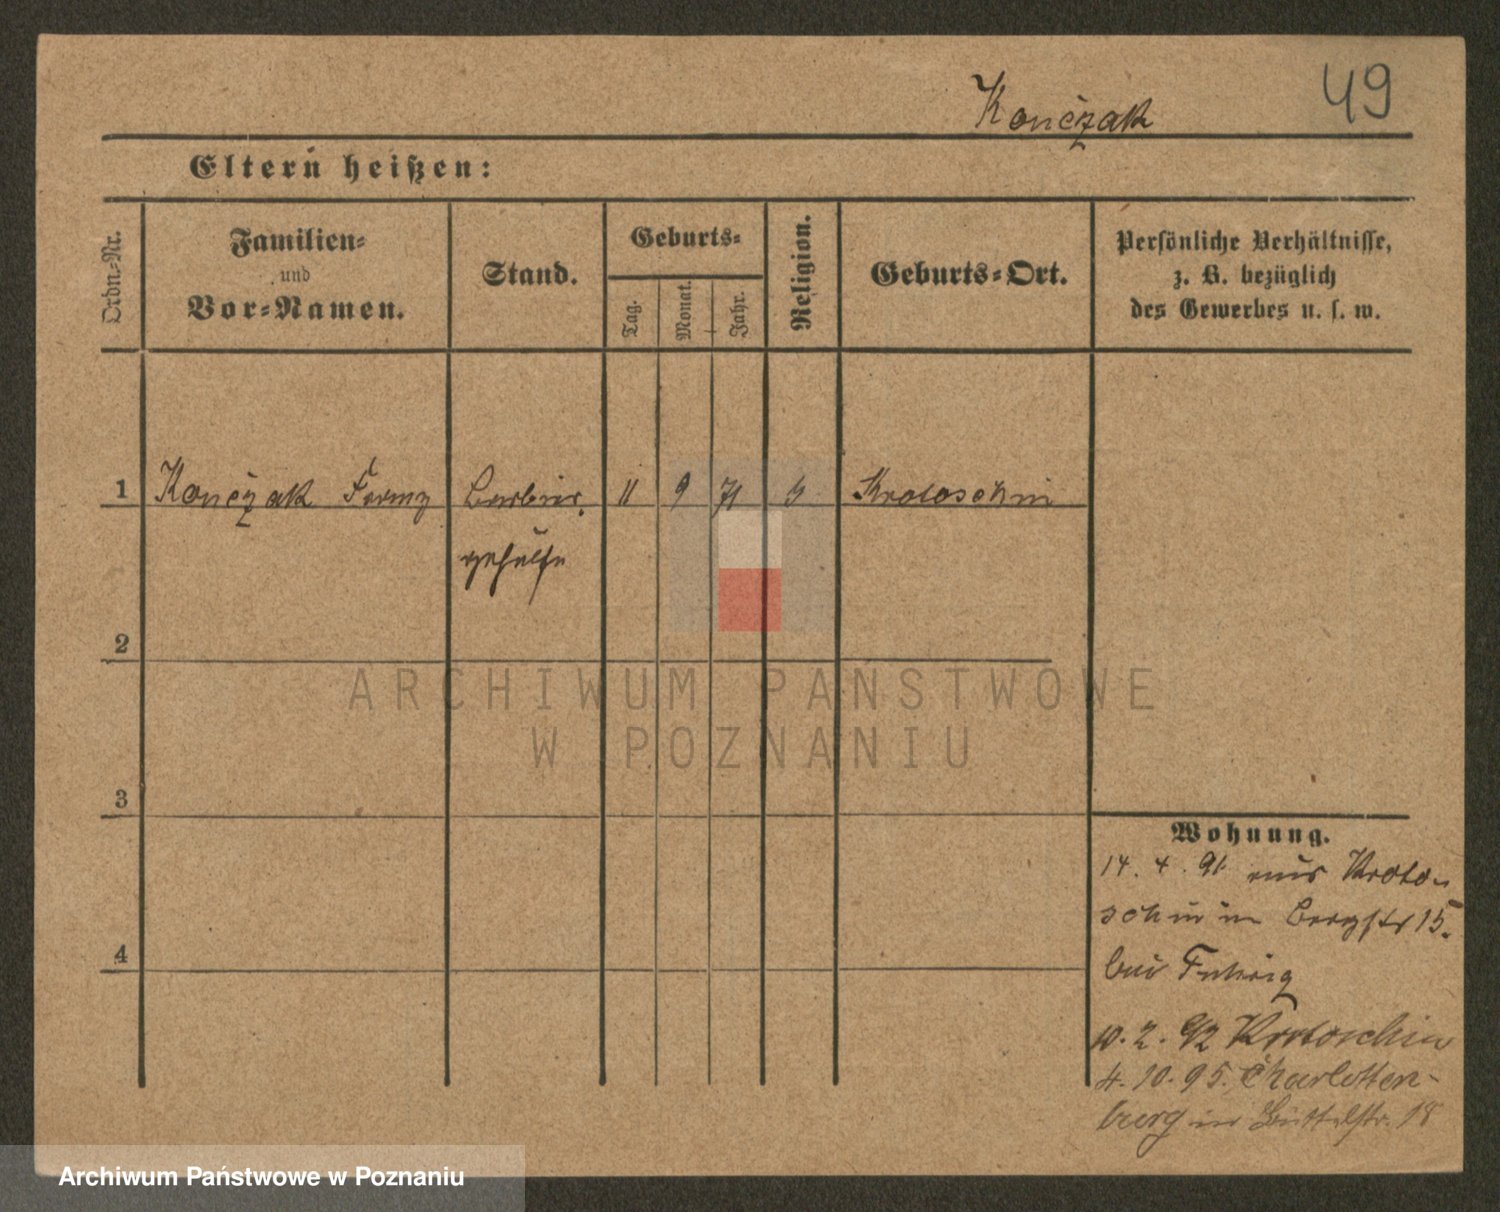 49
Kończak
Eltern heißen:
Ordn.-Nr.
Familien-
und
Vor-Namen.
Stand.
Geburts-
Tag.
Monat.
Jahr.
Religion.
Geburts-Ort.
Persönliche Verhältnisse,
z. B. bezüglich
des Gewerbes u. s. w.
1 Kończak Franz Barbier 11 9 71 Krotoschin
gehülfe
2
3
4
Wohnung.
14. 4. 91 aus Kroto-
schin in Bergstr 15.
bei
10. 2. 92 Krotoschin
4. 10. 95. Charlotten-
burg in 18
ARCHIWUM PAŃSTWOWE
W POZNANIU
Archiwum Państwowe w Poznaniu